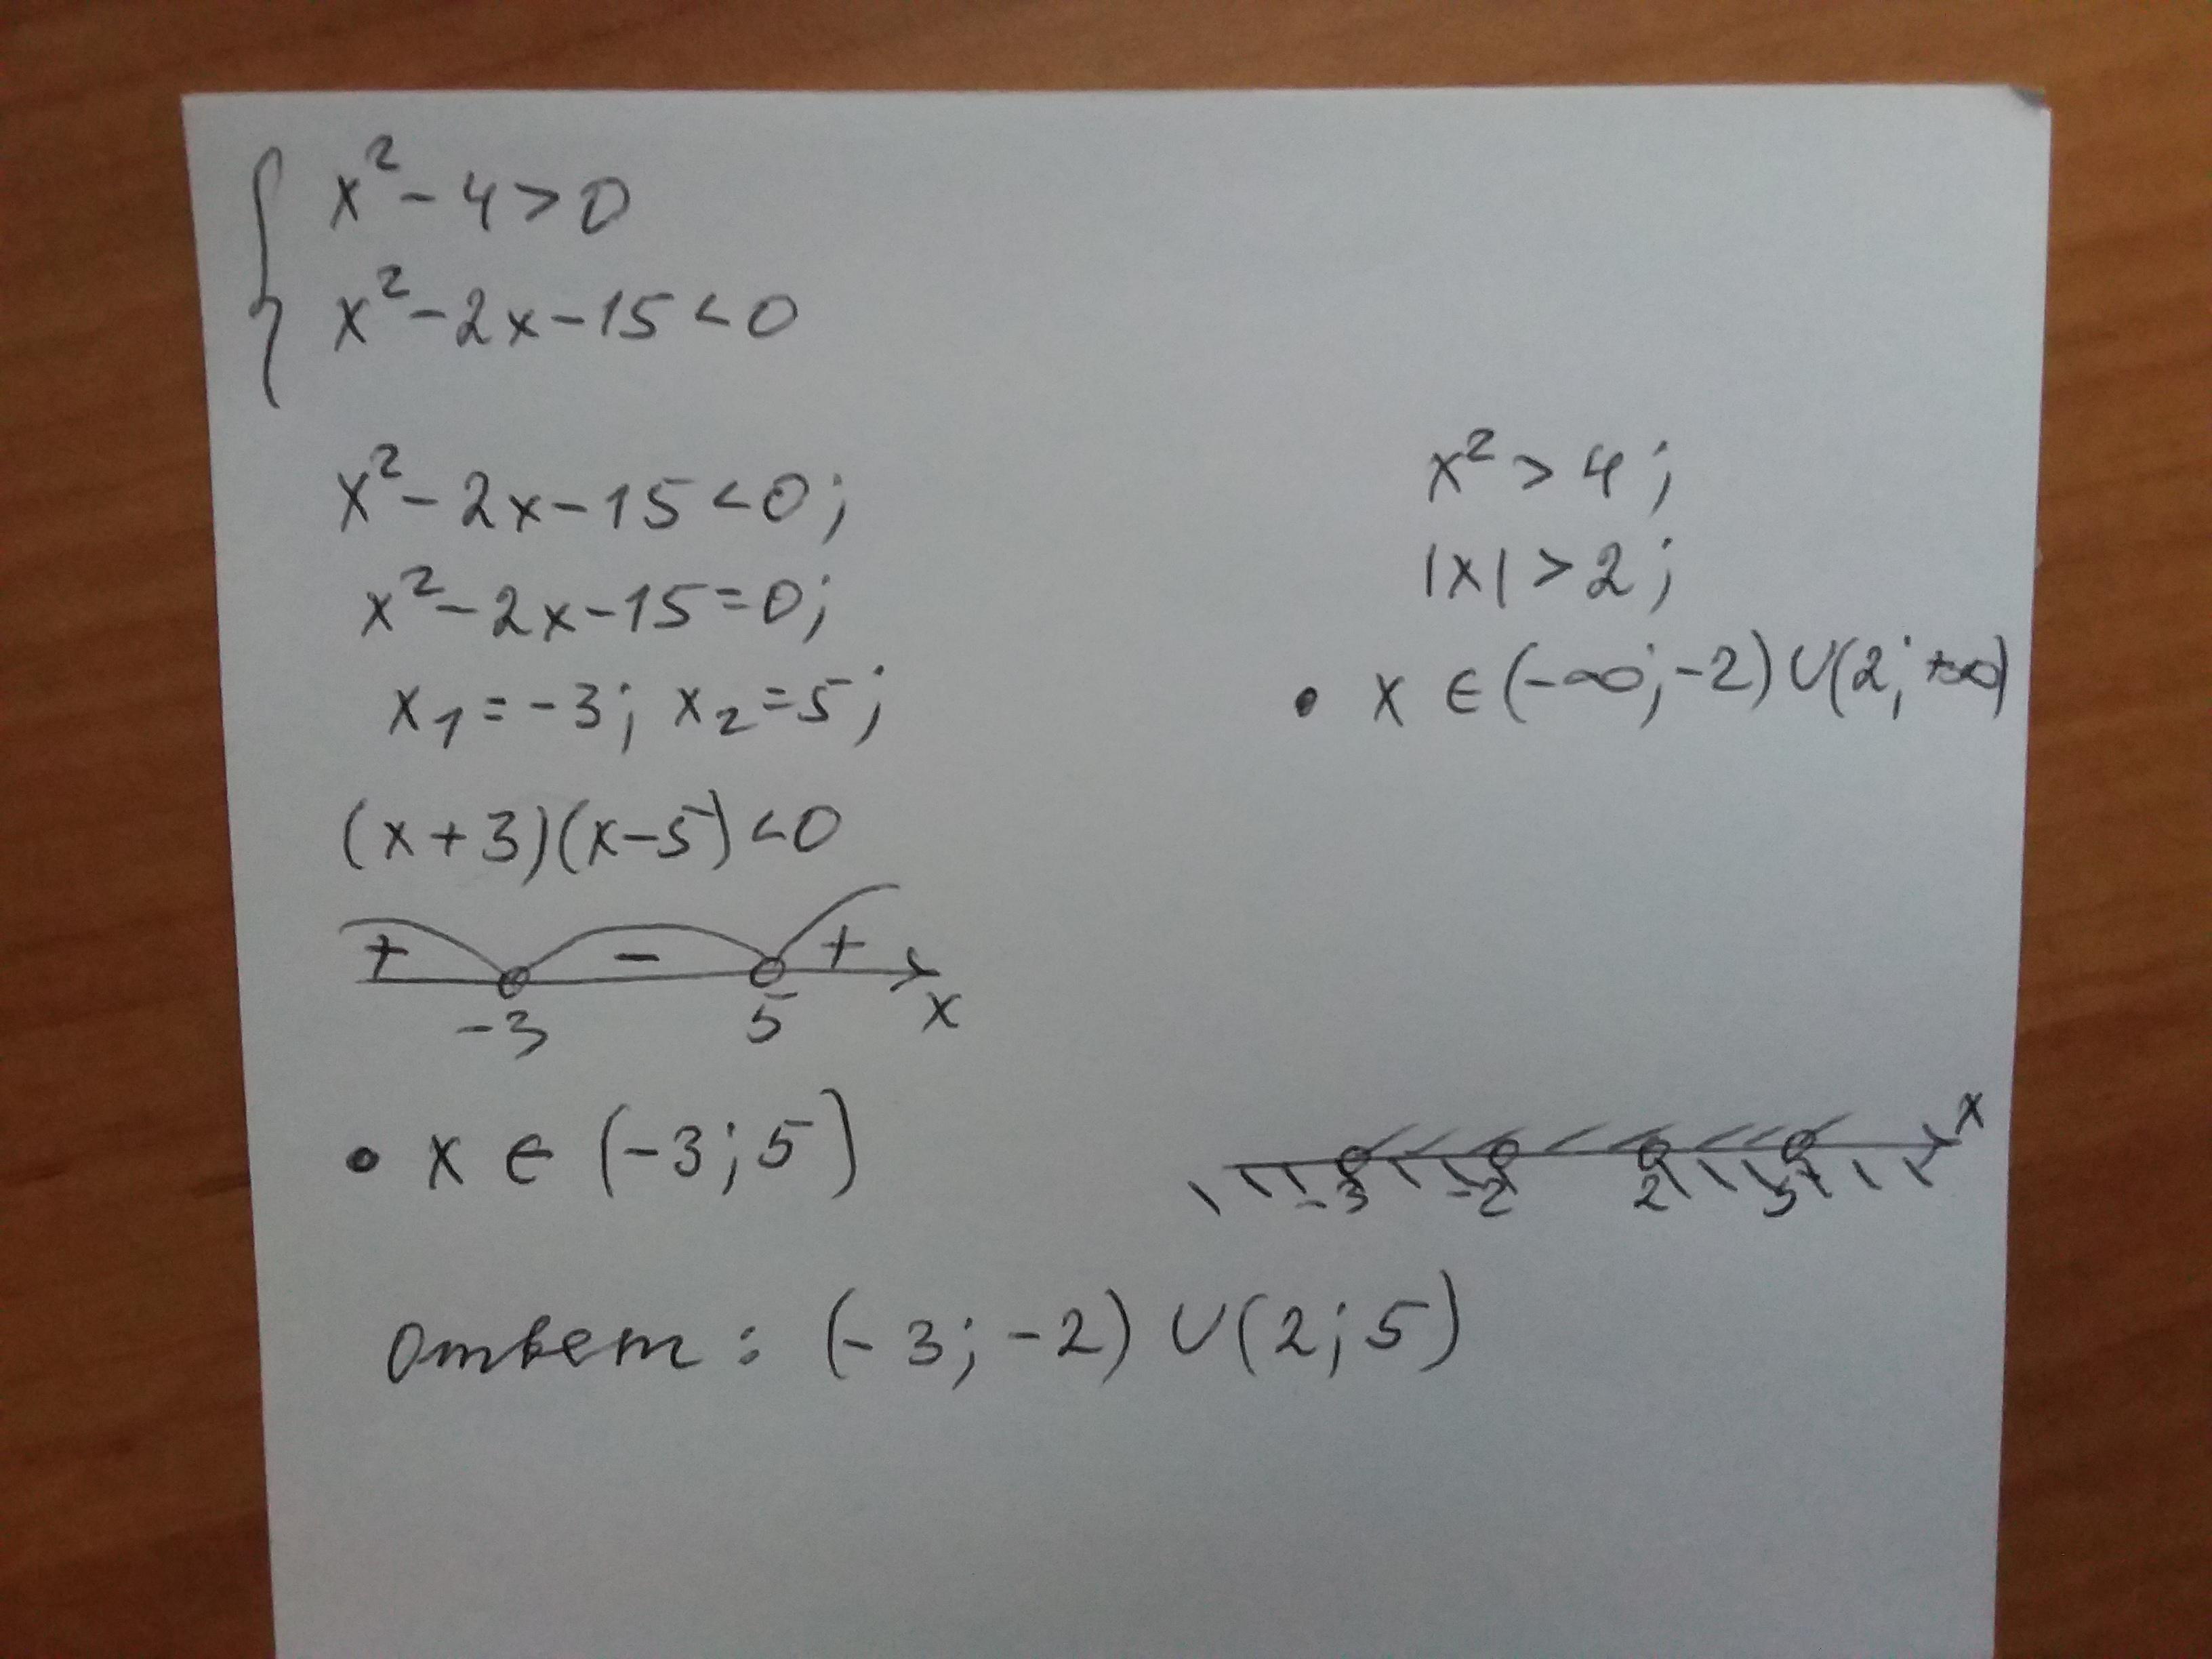 x² - 4 > 0
x² - 2x - 15 < 0
x² - 2x - 15 < 0;
x² - 2x - 15 = 0;
x₁ = -3; x₂ = 5;
(x + 3)(x - 5) < 0
+ - +
-3 5 x
• x ∈ (-3; 5)
x² > 4;
|x| > 2;
• x ∈ (-∞; -2) ∪ (2; +∞)
x
-3 -2 2 5
Ответ: (-3; -2) ∪ (2; 5)